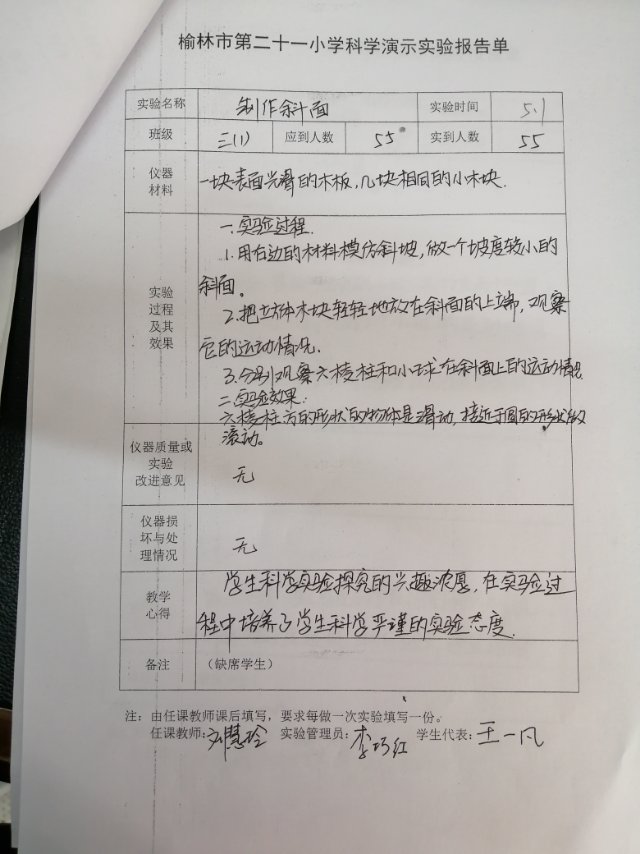 榆林市第二十一小学科学演示实验报告单
实验名称 制作斜面 实验时间 5.1
班级 三(1) 应到人数 55 实到人数 55
仪器
材料
一块表面光滑的木板,几块相同的小木块.
实验
过程
及其
效果
一.实验过程.
1.用右边的材料模仿斜坡,做一个坡度较小的
斜面。
2.把立方体木块轻轻地放在斜面的上端,观察
它的运动情况.
3.分别观察六棱柱和小球在斜面上的运动情况
二.实验效果:
六棱柱 的形状的物体是滑动,接近于圆的形状
滚动。
仪器质量或
实验
改进意见
无
仪器损
坏与处
理情况
无
教学
心得
学生科学实验探究的兴趣浓厚,在实验过
程中培养了学生科学严谨的实验态度.
备注 (缺席学生)
注: 由任课教师课后填写,要求每做一次实验填写一份。
任课教师: 刘慧玲 实验管理员: 李巧红 学生代表: 王一凡